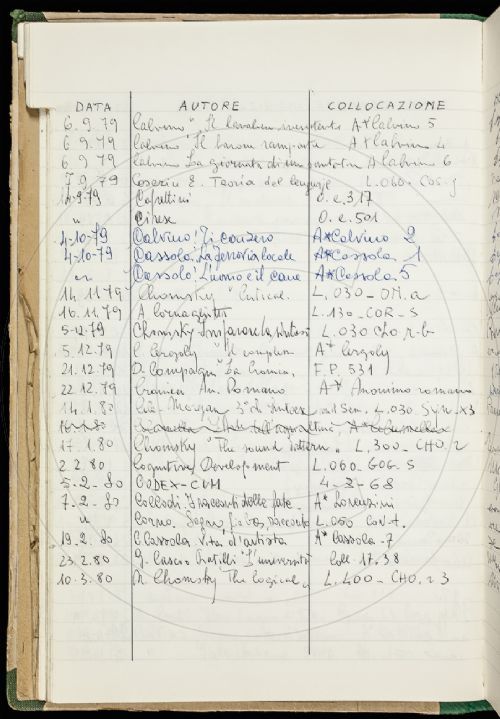 DATA AUTORE COLLOCAZIONE
6.9.79 Calvino "Il cavaliere inesistente A*Calvino 5
6.9.79 Calvino Il barone rampante A*Calvino 4
6 9 79 Calvino La giornata di A Calvino 6
7.9.79 Coseriu E. Teoría del lenguaje L.060-COS.
9.79 Cafettini O.c.317
" Cirese O.c.501
4-10-79 Calvino: Ti con zero A*Calvino 2
4-10-79 Cassola: La ferrovia locale A*Cassola 1
" Cassola: L'uomo e il cane A*Cassola 5
14.11.79 Chomsky L.030-
16.11.79 A L.130-COR-S
5-12.79 Chomsky sintassi L.030 CHO r-b
5.12.79 C. Cergoly "Il complesso A* Cergoly
21.12.79 D. Compagni "La Cronica, F.P. 531
22.12.79 Cronica An. Romano A* Anonimo romano
14.1.80 Morgan 3° Syntax and Sem. L.030 SYN. X3
17.1.80 Chomsky "The sound pattern" L.300-CHO.2
2.2.80 Cognitive Development L.060-COG.S
5-2-80 CODEX-CUM 4-B-68
7-2-80 Collodi. I racconti delle fate A* Lorenzini
" Corno. L.050 COR-t.
19.2.80 C Cassola Vita d'artista A* Cassola-7
23.2.80 G. Lascio Pratilli "L'università Coll. 17.38
10.3.80 N. Chomsky The Logical " L.400-CHO.23